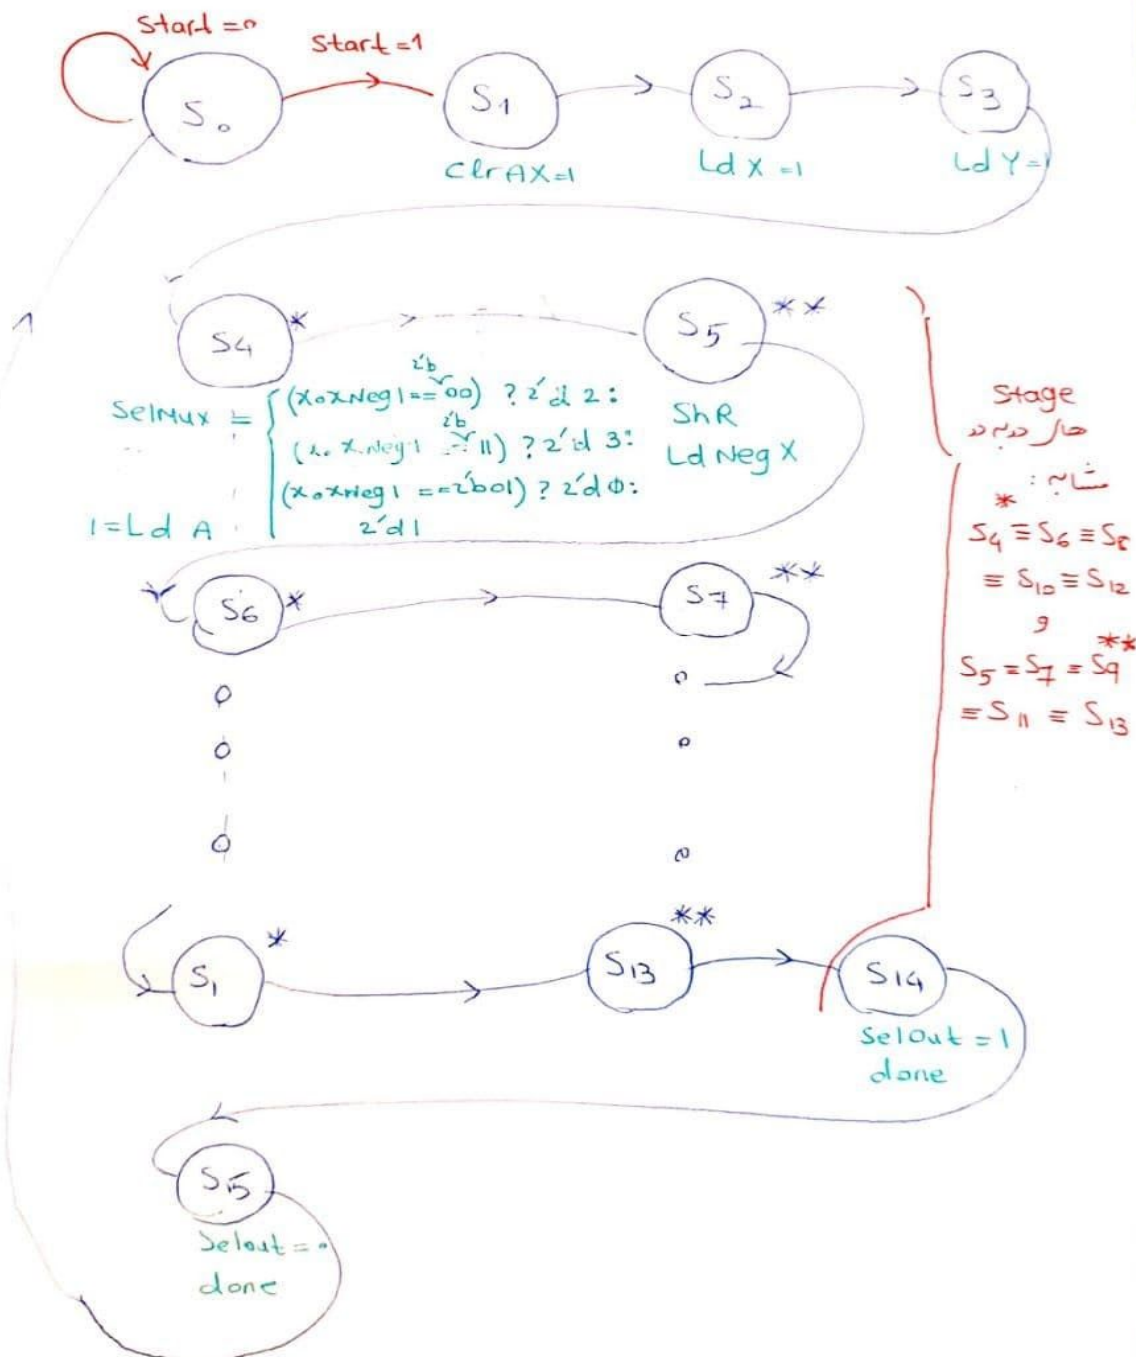 Start = 0
Start = 1
S0
S1
S2
S3
Clr AX = 1
Ld X = 1
Ld Y = 1
S4 *
S5 **
SelMux =
(x0xNeg1 == 2'b00) ? 2'd 2 :
(x0 xNeg1 == 2'b11) ? 2'd 3 :
(x0xNeg1 == 2'b01) ? 2'd0 :
2'd1
1 = Ld A
ShR
Ld Neg X
Stage
های دو به دو
مشابه :
*
S4 ≡ S6 ≡ S8
≡ S10 ≡ S12
و
**
S5 = S7 = S9
≡ S11 ≡ S13
S6 *
S7 **
S1 *
S13 **
S14
SelOut = 1
done
S15
Selout = 0
done